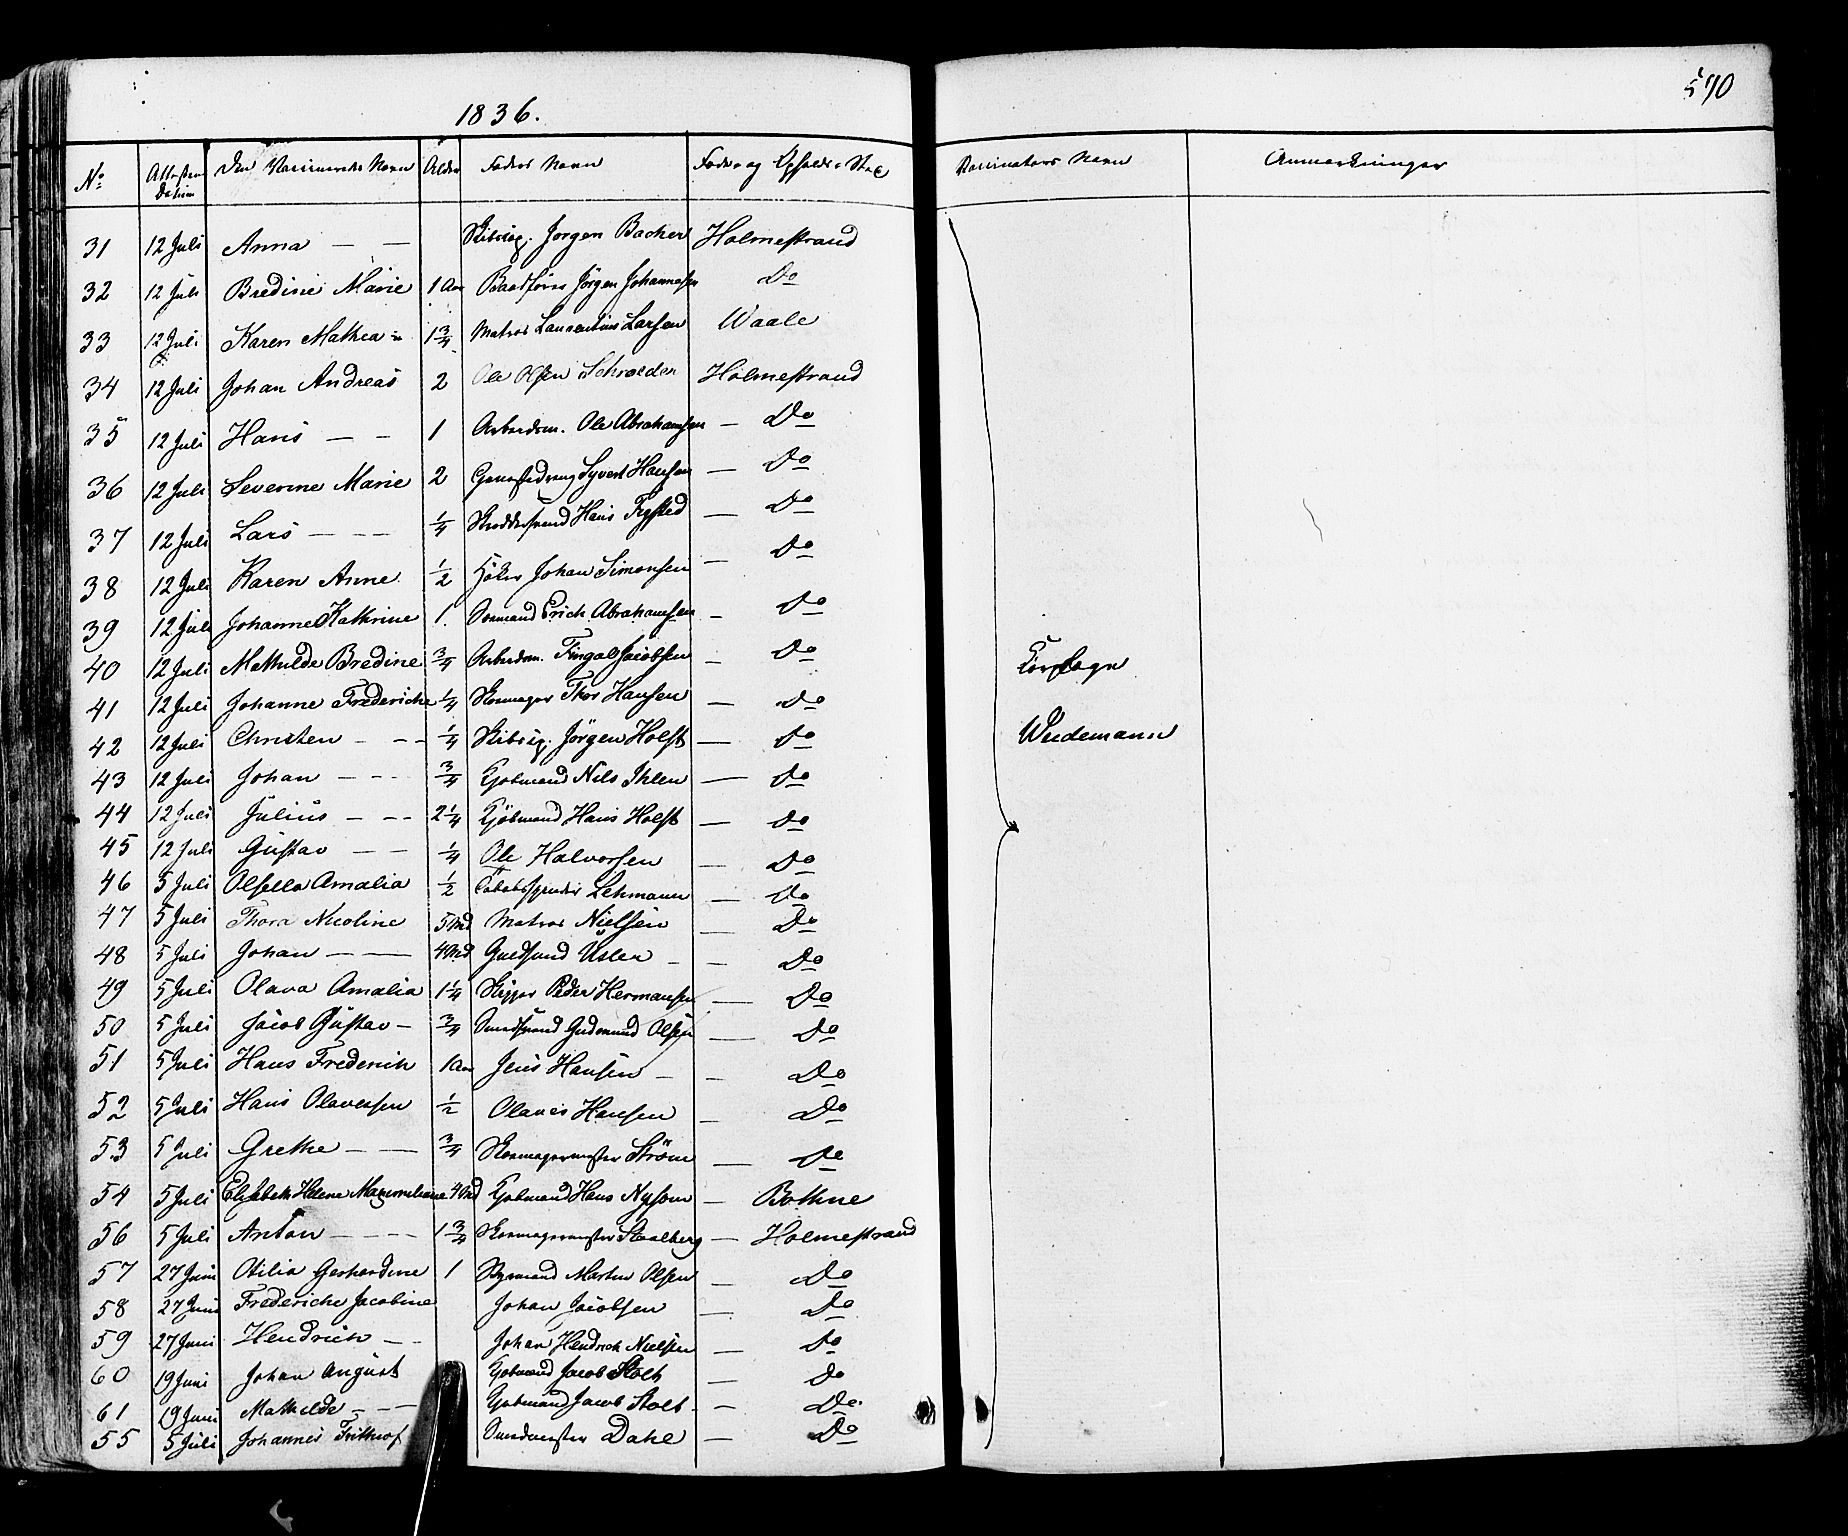 570
1836.
No Attestens Datum Den Vaccineredes Navn Alder Faders Navn Føde- og Opholds-Sted Vaccinators Navn Anmærkninger
31 12 Juli Anna — — Skibscap. Jørgen Backer Holmestrand
32 12 Juli Bredine Marie 1 Aar Baadsfører Jörgen Johannesen Do
33 12 Juli Karen Mathea 1 3/4 Matros Laurentius Larsen Waale
34 12 Juli Johan Andreas 2 Ole Olsen Schrøeder Holmestrand
35 12 Juli Hans — — 1 Arbeidsm. Ole Abrahamsen — Do
36 12 Juli Severine Marie 2 Syvert Hansen — Do
37 12 Juli Lars — — — 1/4 Hans Fegsted — Do
38 12 Juli Karen Anne 1/2 Høker Johan Simonsen — Do
39 12 Juli Johanne Kathrine 1. Erich Abrahamsen — Do
40 12 Juli Mathilde Bredine 3/4 Arbeidsm. Fingal Jacobsen — Do
41 12 Juli Johanne Frederiche 1/4 Skomager Thor Hansen — Do
42 12 Juli Christen — — — 1/4 Skibscap. Jörgen Holst — Do Wiedemann
43 12 Juli Johan — — — 3/4 Kjøbmand Nils Ihlen — Do
44 12 Juli Julius — — — 2 1/4 Kjöbmand Hans Holst — Do
45 12 Juli Gustav — — 1/4 Ole Halvorsen — Do
46 5 Juli Olsella Amalia 1/2 Tobaksspinder Lehmann — Do
47 5 Juli Thora Nicoline 5 Md Matros Nielsen — Do
48 5 Juli Johan — — 4 Md Guldsmed — — Do
49 5 Juli Olava Amalia 1 1/4 Skipper Peder Hermansen — Do
50 5 Juli Jacob Gustav — 3/4 Gudmund Olsen — Do
51 5 Juli Hans Frederich 1 Aar Jens Hansen — — Do
52 5 Juli Hans Olavesen 1/2 Olaves Hansen — Do
53 5 Juli Grethe — — 3/4 Skomagermester Ström — Do
54 5 Juli Elisabeth Helene Maximeliane 4 Md Kjøbmand Hans — Bothne
56 5 Juli Anton — — — — 1 3/4 Skomagermester Staalberg — Holmestrand
57 27 Juni Otilia Gerhardine 1 Styrmand Martin Olsen — Do
58 27 Juni Frederiche Jacobine Johan Jacobsen — Do
59 27 Juni Hendrich — — Johan Hendrich Nielsen — Do
60 19 Juni Johan August Kjøbmand Jacob Stolt — Do
61 19 Juni Mathilde — — — Kjøbmand Jacob Stolt — Do.
55 5 Juli Johannes Frithiof Dahl — Do